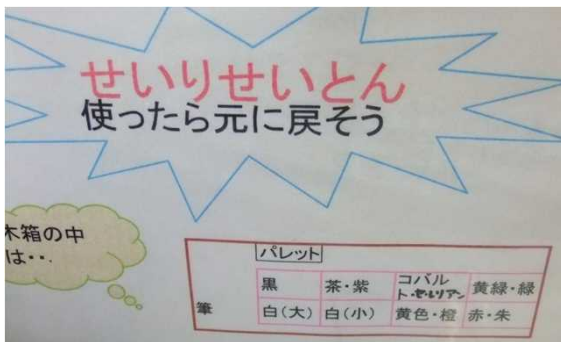 せいりせいとん
使ったら元に戻そう
木箱の中
は・・.
パレット
黒 茶・紫 コバル
ト・セルリアン 黄緑・緑
筆 白(大) 白(小) 黄色・橙 赤・朱